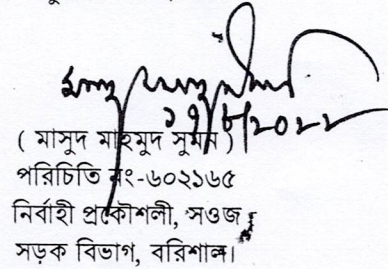 ১৭/৮/২০২২
( মাসুদ মাহমুদ সুমন )
পরিচিতি নং-৬০২১৬৫
নির্বাহী প্রকৌশলী, সওজ
সড়ক বিভাগ, বরিশাল।